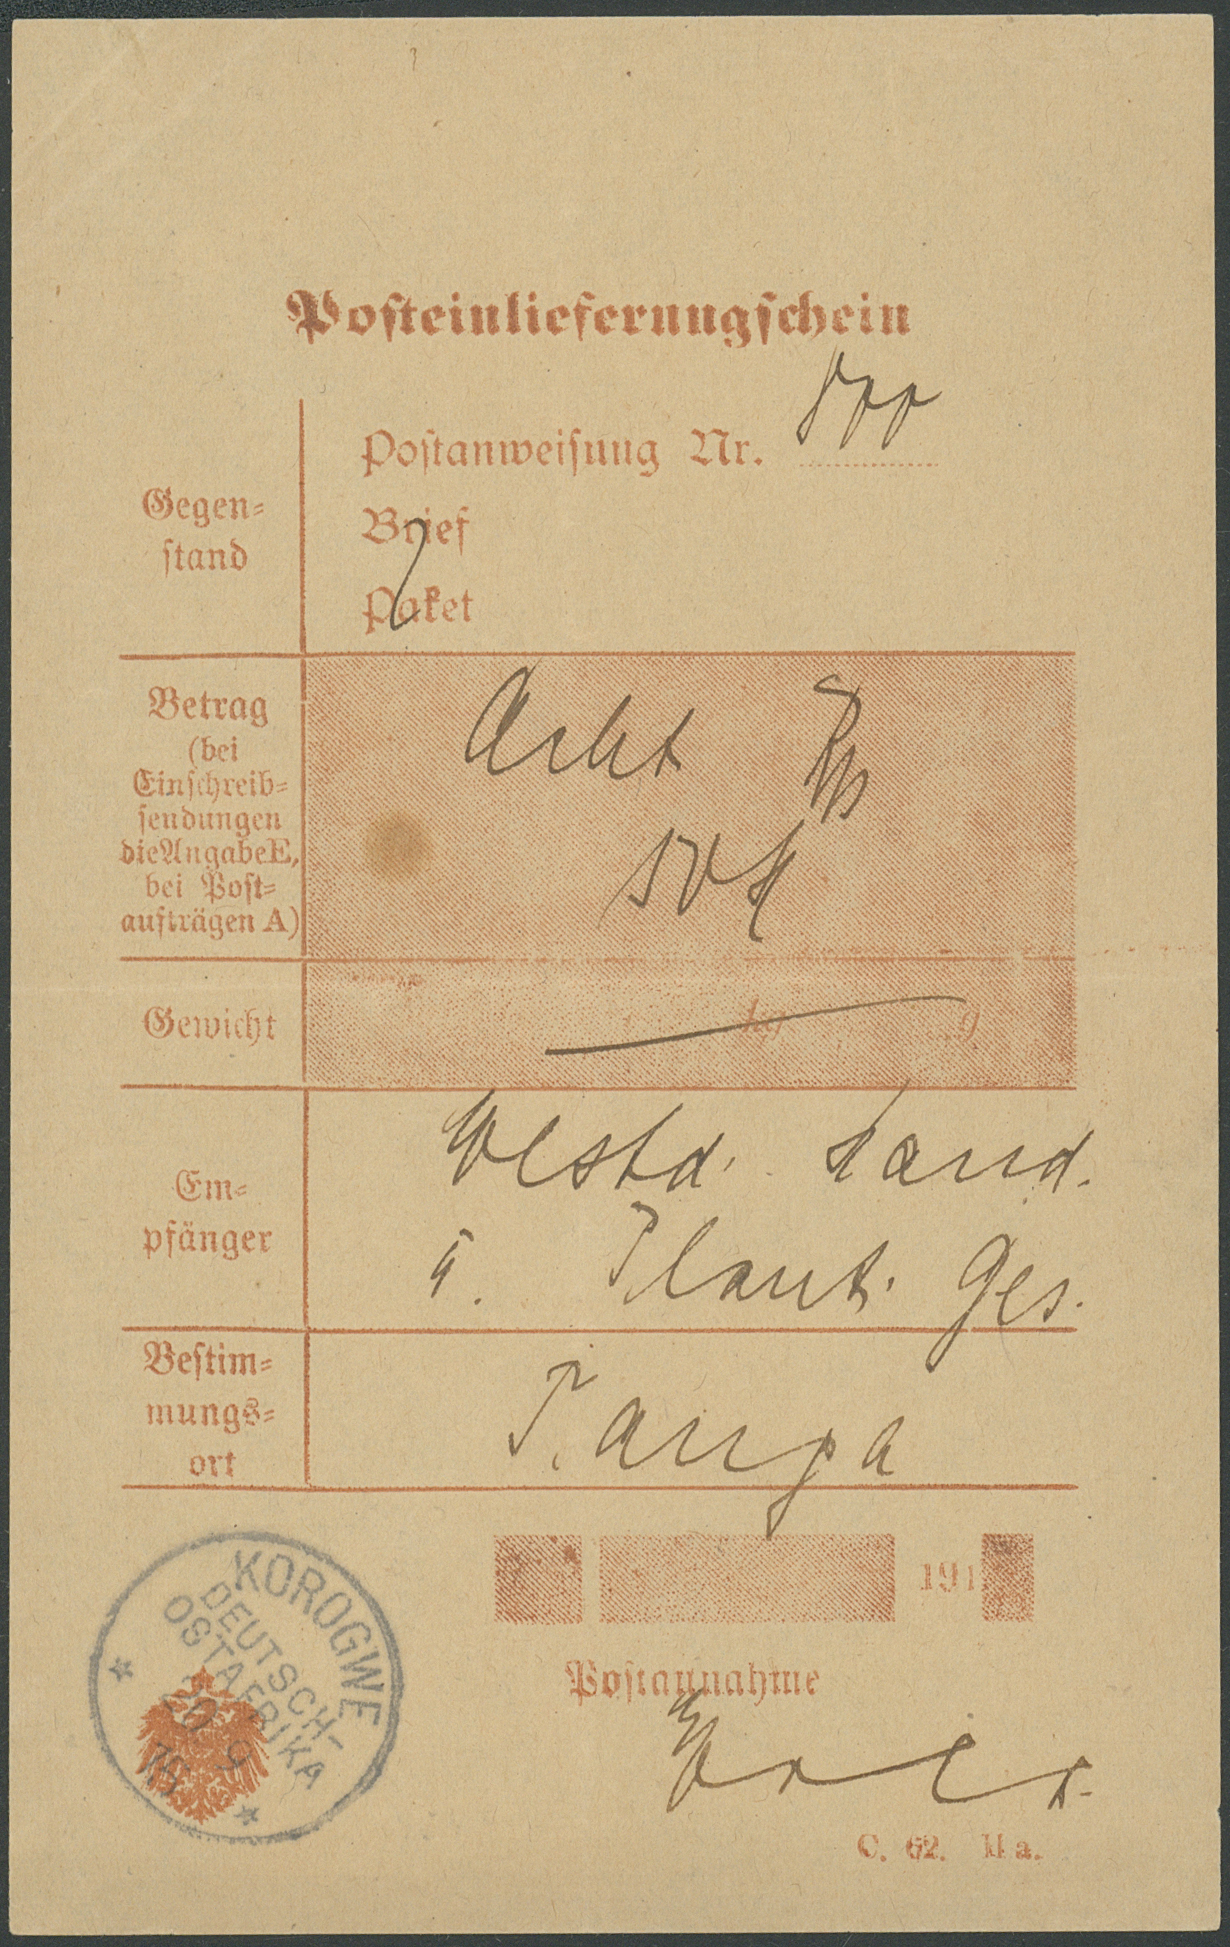 Posteinlieferungschein
Postanweisung Nr.
Brief
Paket
Gegen-
stand
Betrag
(bei
Einschreib-
sendungen
die Angabe E,
bei Post-
aufträgen A)
Acht Rp
50 H
Gewicht
kg g
Em-
pfänger
Westd. Hand.
u. Plant. Ges.
Bestim-
mungs-
ort
Tanga
191
KOROGWE
DEUTSCH-
OSTAFRIKA
20 9
15
Postannahme
C. 62. II a.